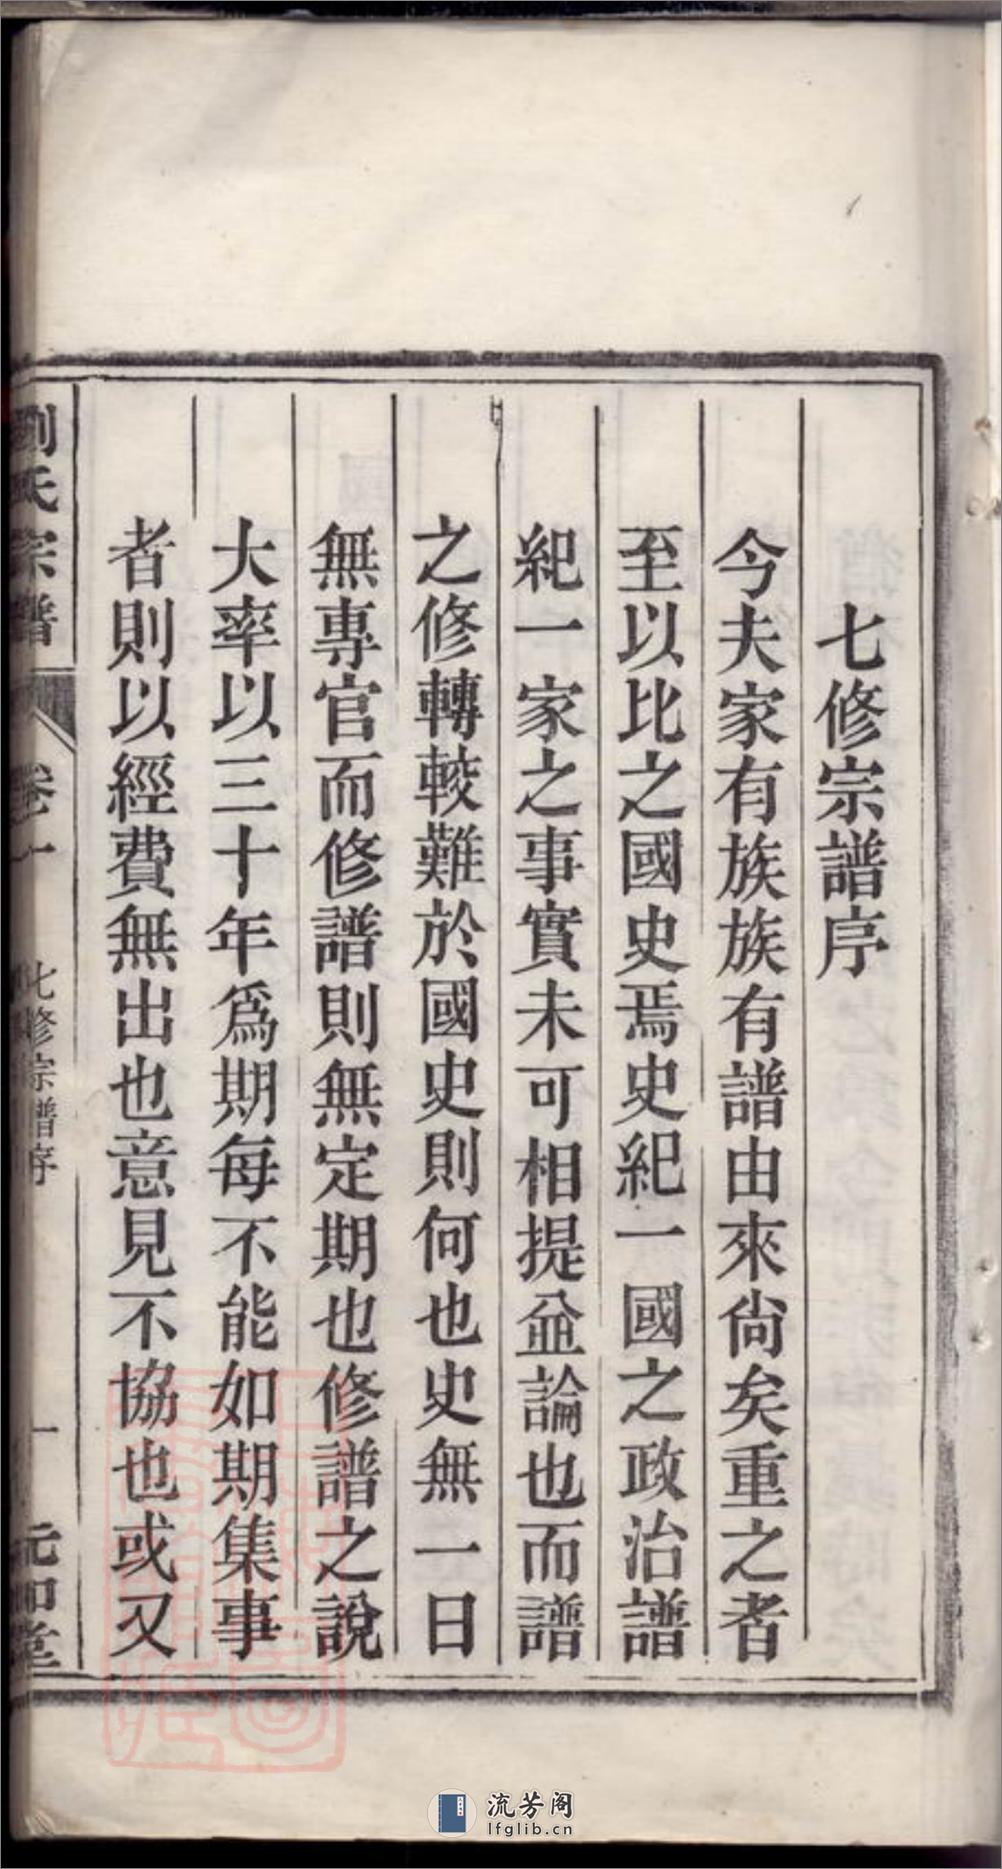 七修宗譜序
今夫家有族族有譜由來尙矣重之者
至以比之國史焉史紀一國之政治譜
紀一家之事實未可相提並論也而譜
之修轉較難於國史則何也史無一日
無專官而修譜則無定期也修譜之說
大率以三十年爲期每不能如期集事
者則以經費無出也意見不協也或又
劉氏宗譜
卷一
七修宗譜序
一
元和堂
流芳阁
lfglib.cn